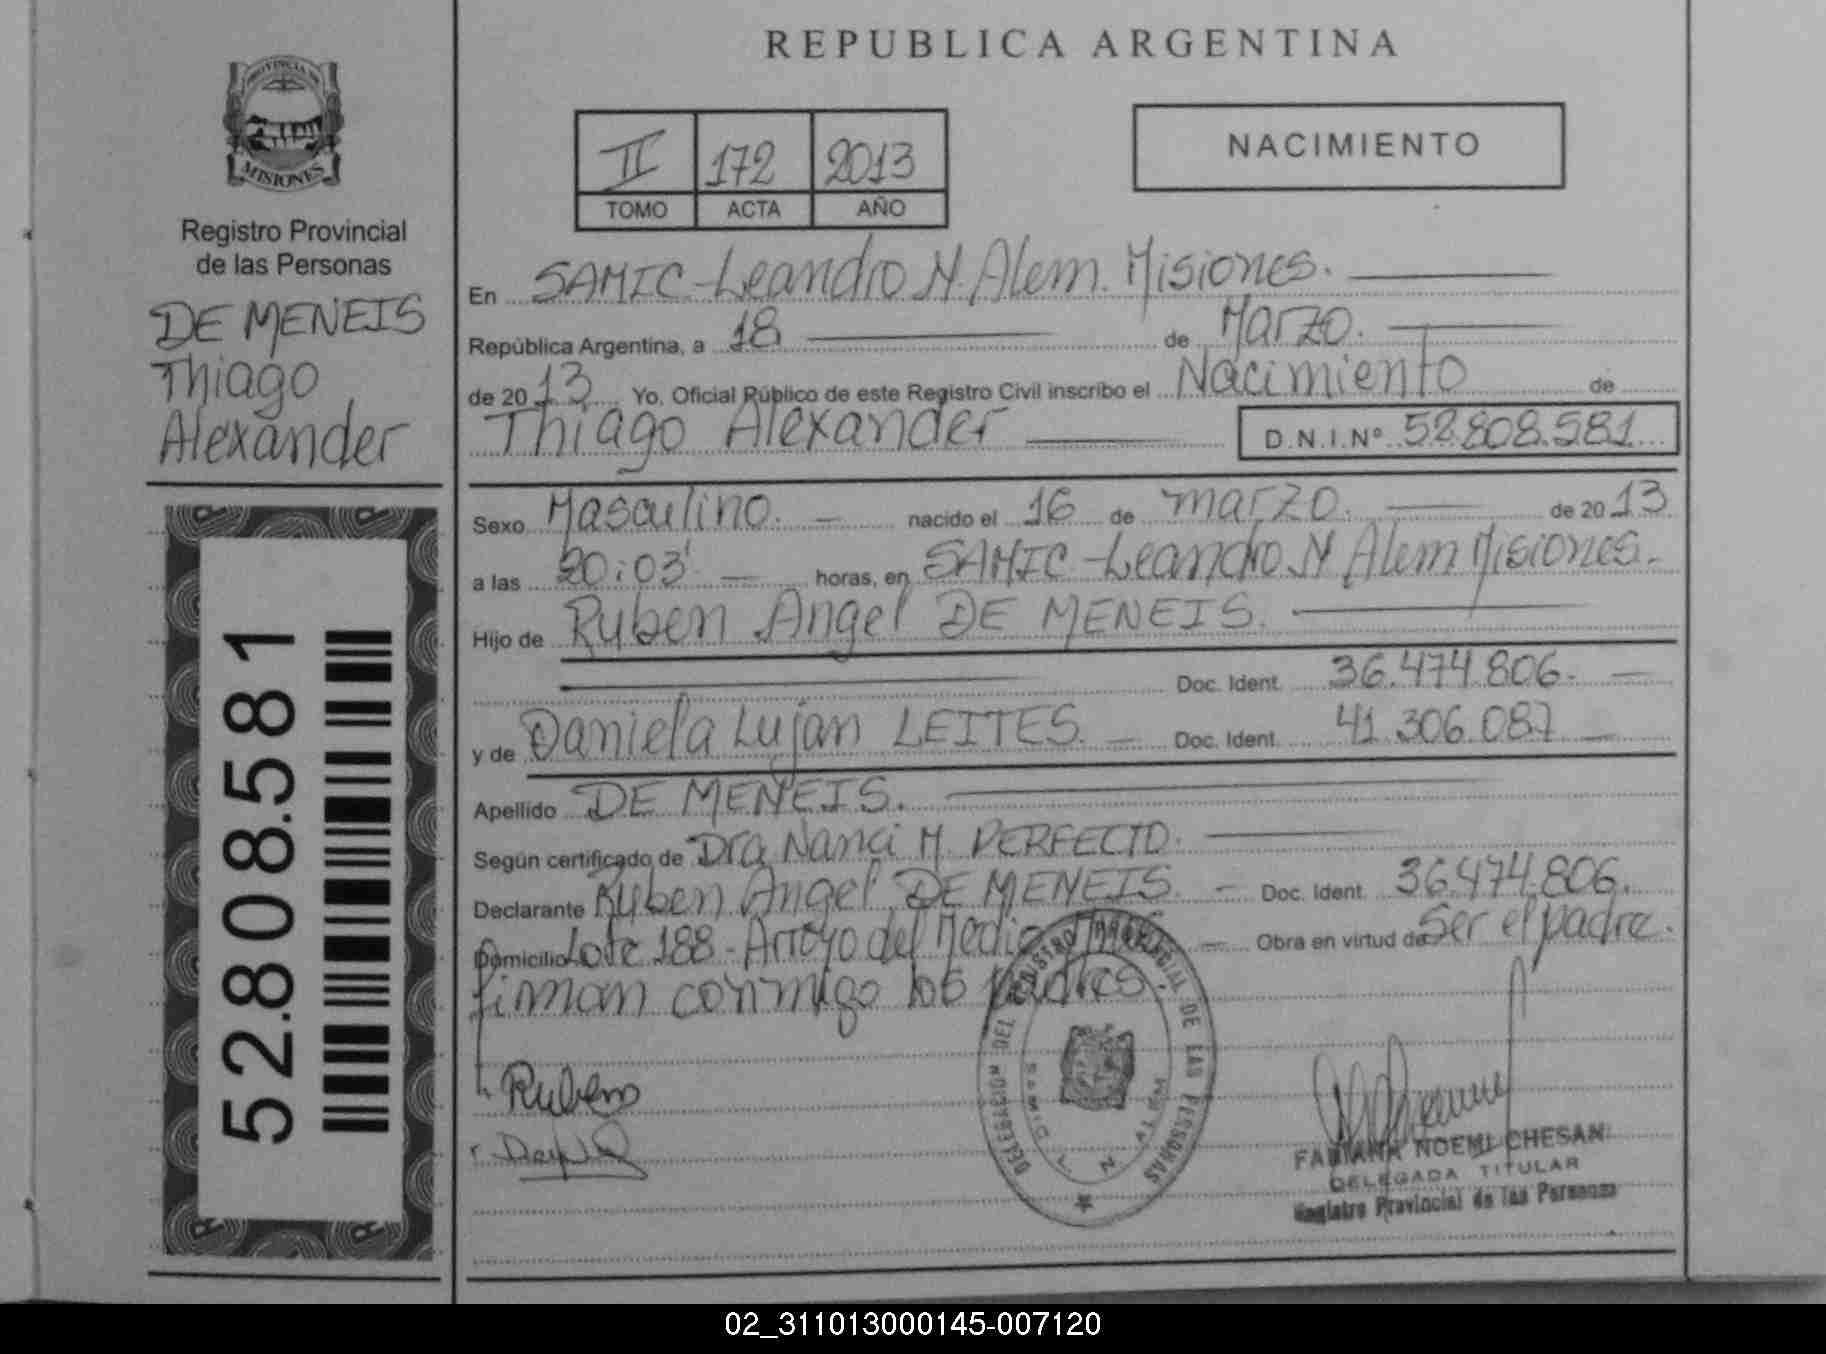 REPUBLICA ARGENTINA
PROVINCIA DE
MISIONES
Registro Provincial
de las Personas
DE MENEIS
Thiago
Alexander
52.808.581
II 172 2013
TOMO ACTA AÑO
NACIMIENTO
En SAMIC-Leandro N. Alem. Misiones.
República Argentina, a 18 de Marzo.
de 2013 Yo, Oficial Público de este Registro Civil inscribo el Nacimiento de
Thiago Alexander D.N.I.Nº 52.808.581
Sexo Masculino. nacido el 16 de marzo. de 2013
a las 20:03' horas, en SAMIC-Leandro N Alem Misiones.
Hijo de Ruben Angel DE MENEIS.
Doc. Ident. 36.474.806.
y de Daniela Lujan LEITES. Doc. Ident. 41.306.087
Apellido DE MENEIS.
Según certificado de Dra Nanci M. PERFECTO.
Declarante Ruben Angel DE MENEIS. Doc. Ident. 36.474.806.
Domicilio Lote 188-Arroyo del Medio Obra en virtud de Ser el padre.
firman conmigo los padres.
Ruben
DELEGACION DEL REGISTRO PROVINCIAL DE LAS PERSONAS
FABIANA NOEMI CHESANI
DELEGADA TITULAR
Registro Provincial de las Personas
02_311013000145-007120